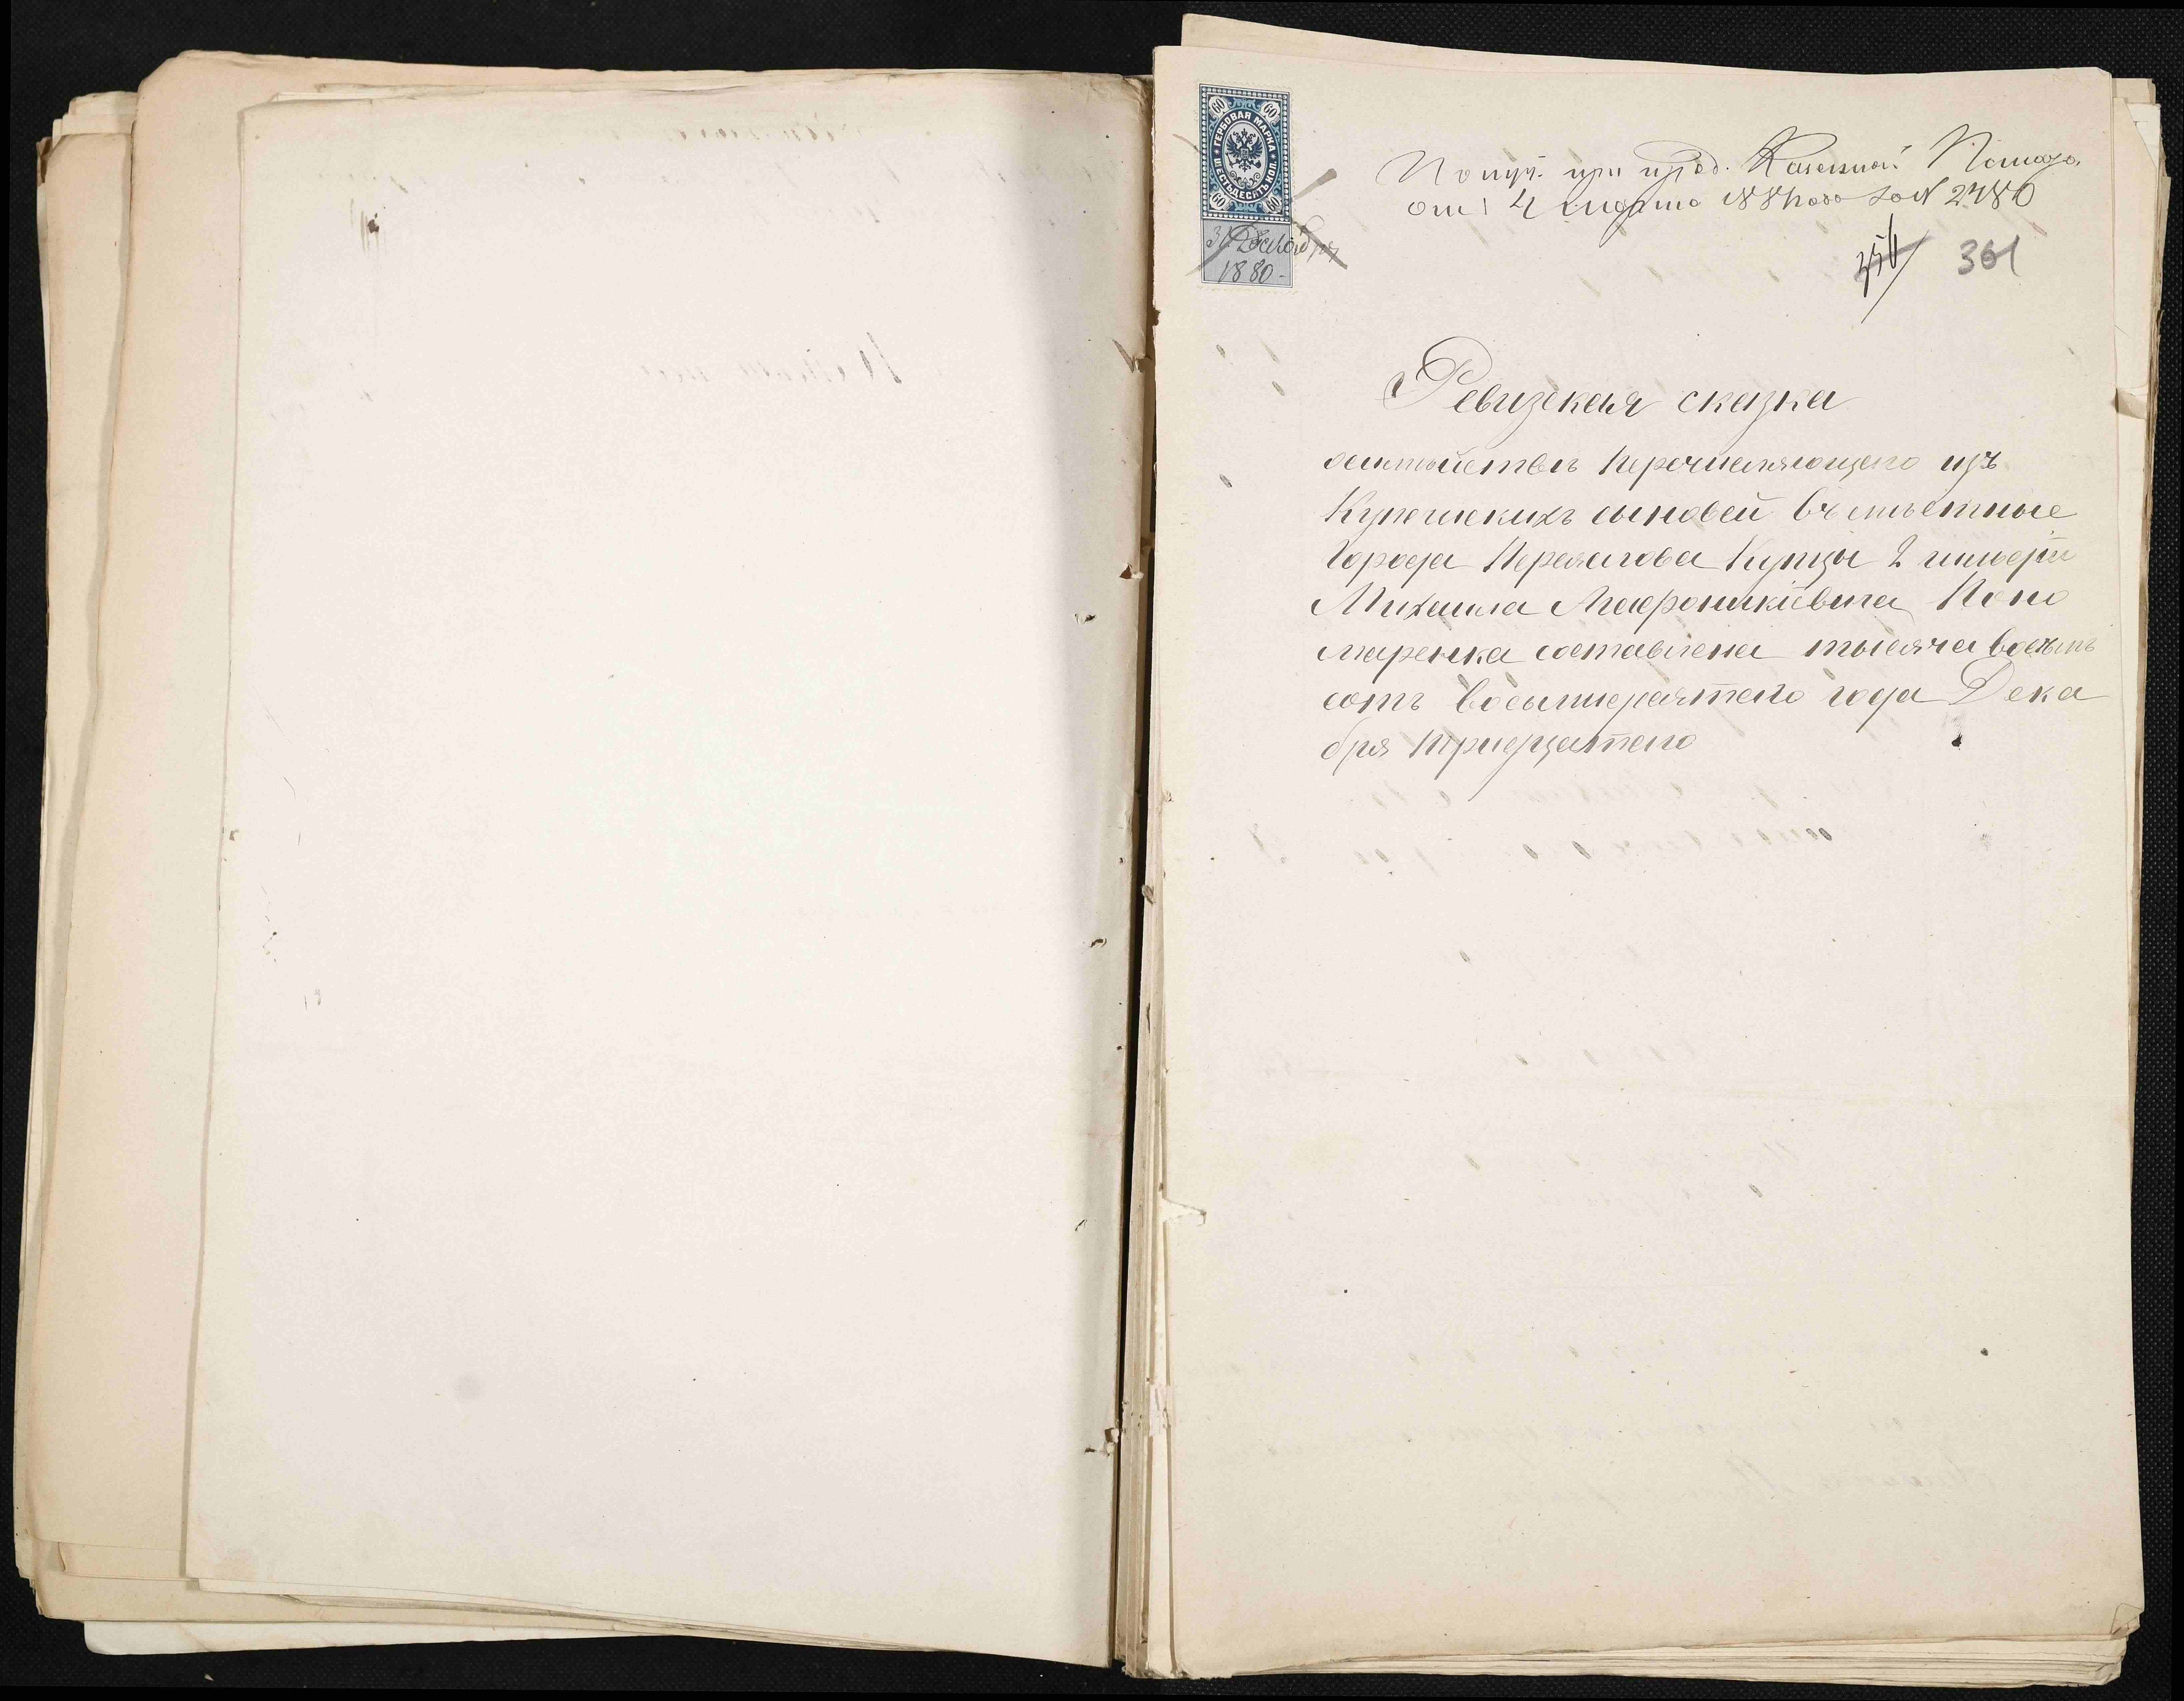 60 60
ГЕРБОВАЯ МАРКА
ШЕСТЬДЕСЯТЪ КОП.
60 60
31 Декабря
1880
Получ. при пред. Казенной Палаты
отъ 4 Марта 1881 года за N 2480
356 361
Ревизкая сказка
о семействѣ перечисляющего изъ
Купеческихъ сыновей въ мѣстные
города Переяслова Купцы 2 гильдіи
Михаила Мафроникіевича Поно
маренка составлена тысяча восемь
сотъ восьмидесятого года Дека
бря тридцатого